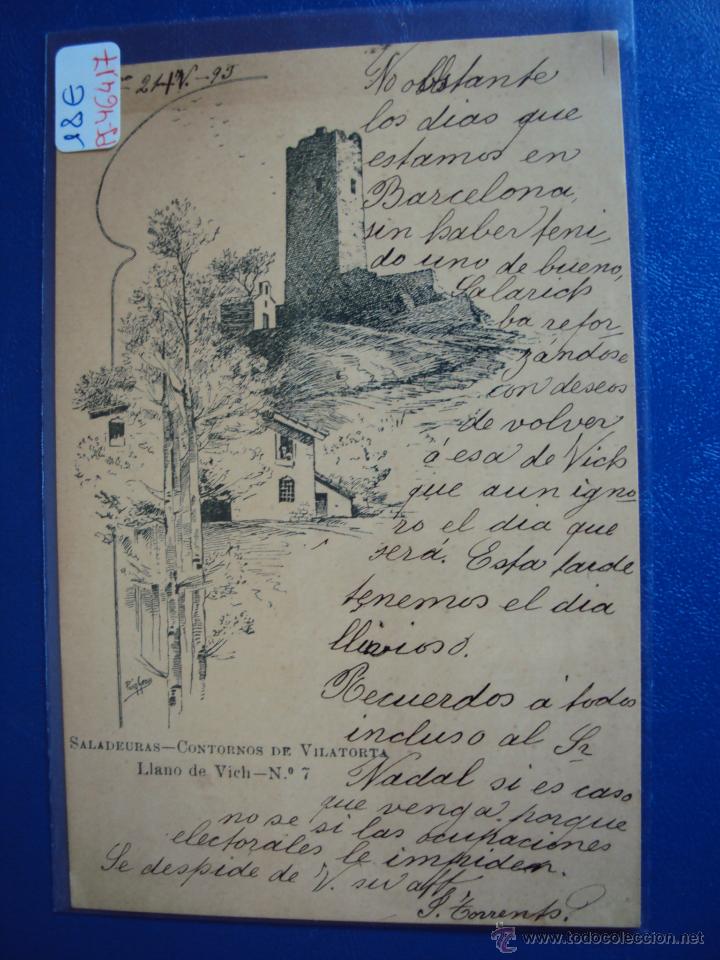 18€
PJ-46417
21-IV.-95
No obstante
los dias que
estamos en
Barcelona,
sin haber teni-
do uno de bueno,
Salarich
ba refor
zándose
con deseos
de volver
á esa de Vich
que aun igno
ro el dia que
será. Esta tarde
tenemos el dia
lluvioso.
Recuerdos á todos
incluso al Sr
Nadal si es caso
que venga porque
no se si las ocupaciones
electorales le impiden.
Se despide de V. su aftº
J. Torrents.
SALADEURAS—CONTORNOS DE VILATORTA
Llano de Vich—N.º 7
www.todocoleccion.net